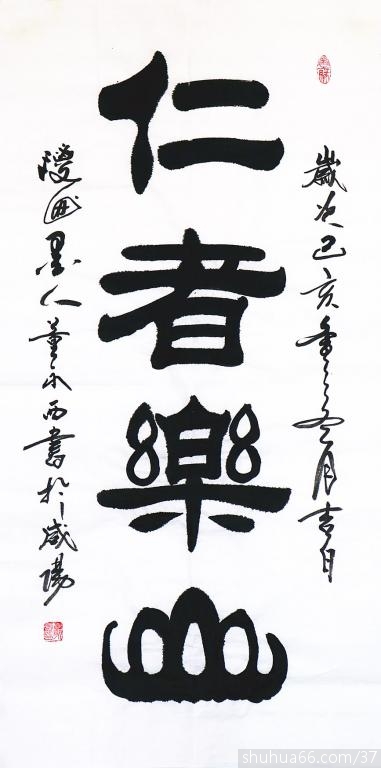 歲次己亥年
月吉日
仁者樂山
墨人董永西書於咸陽
shuhua66.com/37